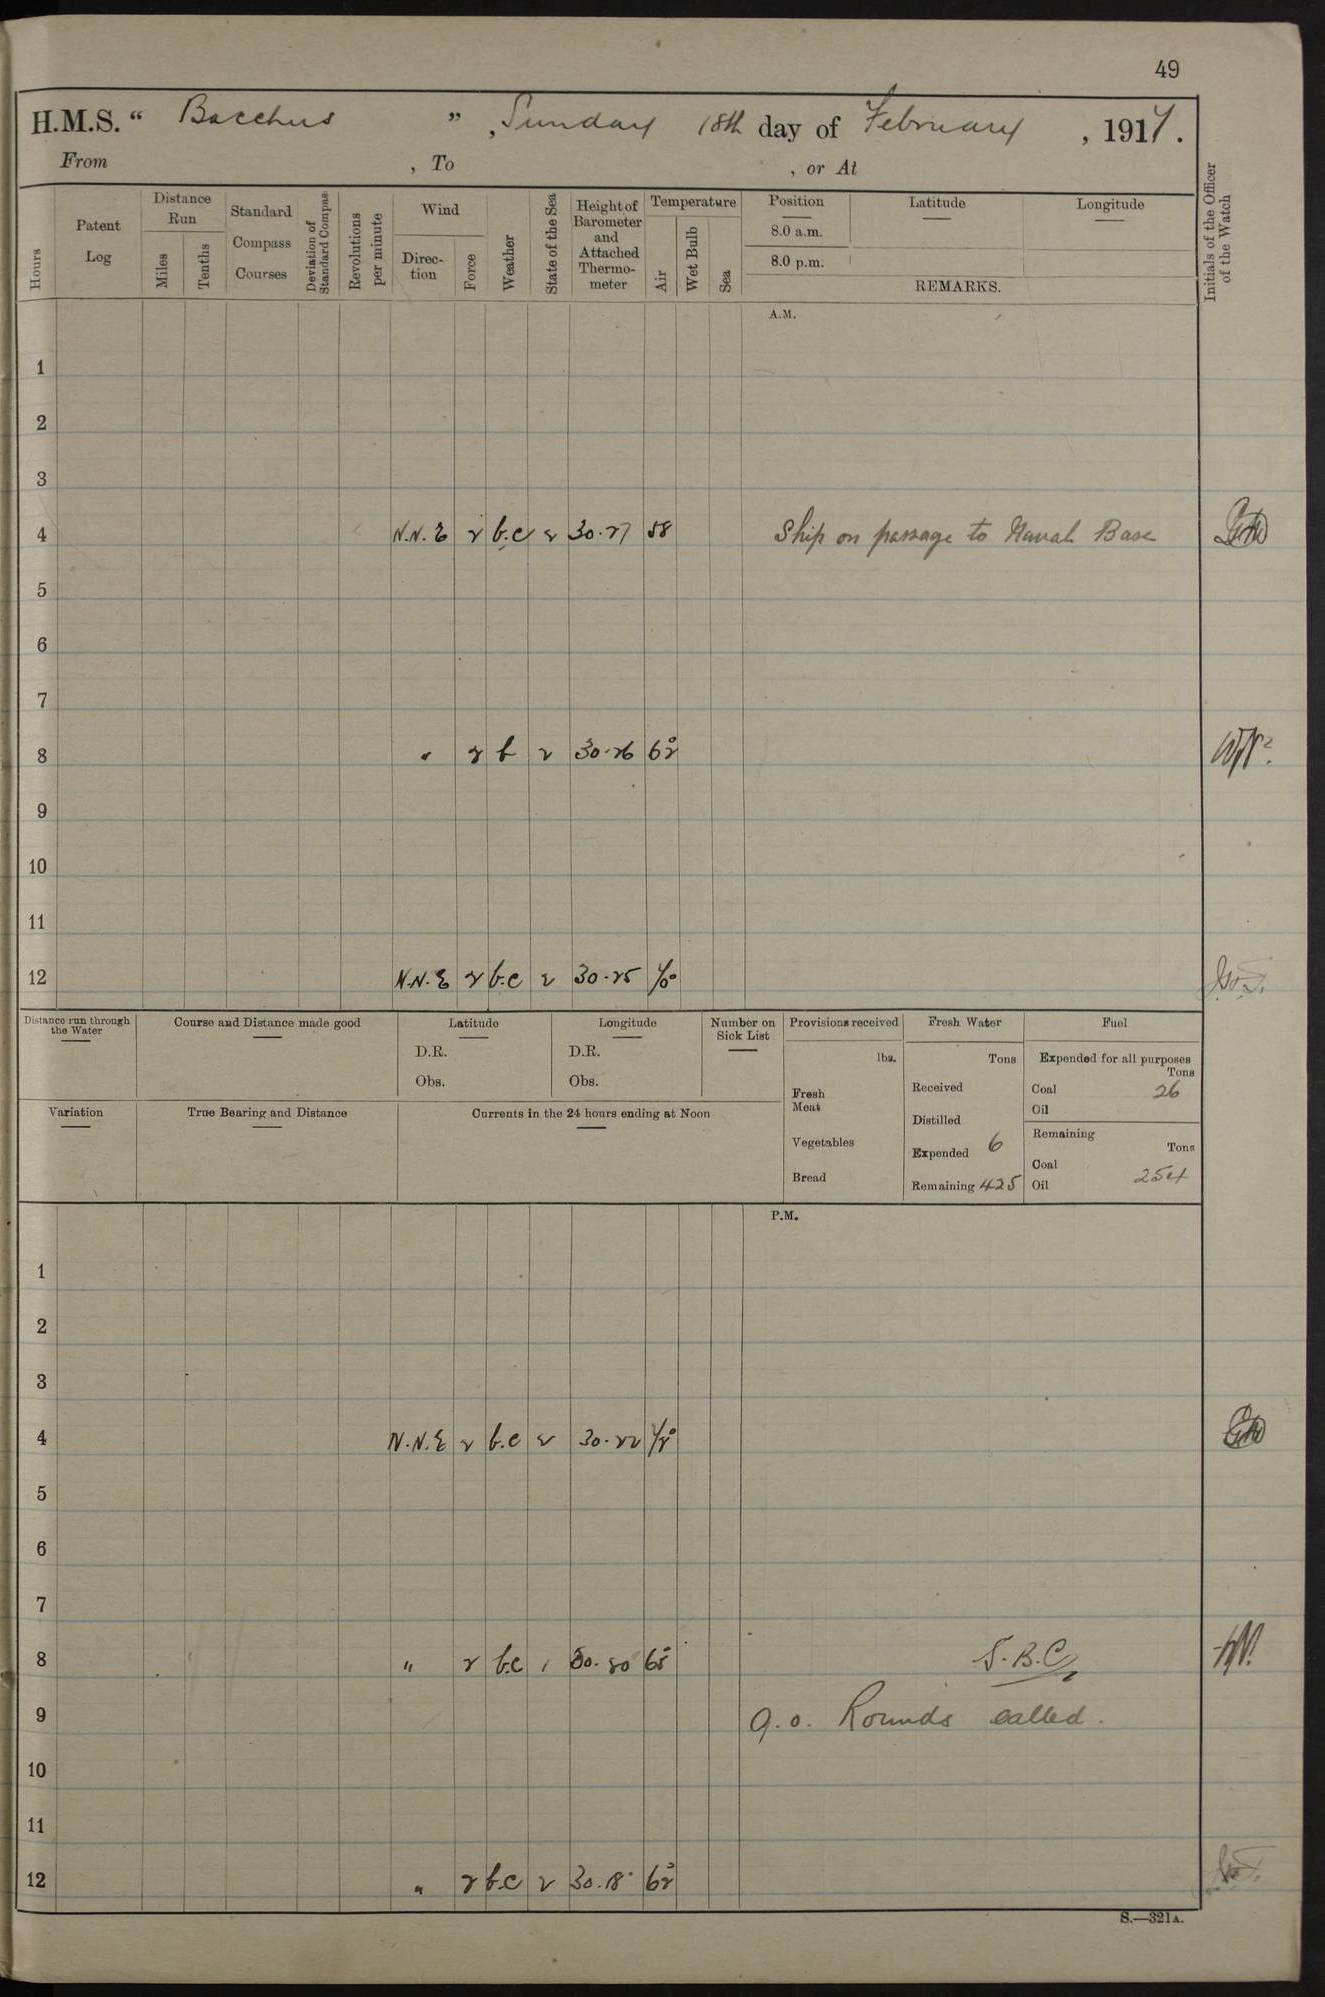 49
H.M.S. “ Bacchus ”, Sunday 18th day of February, 1917.
From , To , or At
Hours
Patent Log
Distance Run
Miles
Tenths
Standard Compass Courses
Deviation of Standard Compass
Revolutions per minute
Wind
Direc-tion
Force
Weather
State of the Sea
Height of Barometer and Attached Thermo-meter
Temperature
Air
Wet Bulb
Sea
Position
8.0 a.m.
8.0 p.m.
Latitude
Longitude
REMARKS.
Initials of the Officer of the Watch
A.M.
1
2
3
4 N.N.E 2 b.c 2 30.27 58 Ship on passage to Naval Base
5
6
7
8 " 2 b 2 30.26 62°
9
10
11
12 N.N.E 2 b.c 2 30.25 70°
Distance run through the Water
Course and Distance made good
Latitude
D.R.
Obs.
Longitude
D.R.
Obs.
Number on Sick List
Provisions received
lbs.
Fresh Meat
Vegetables
Bread
Fresh Water
Tons
Received
Distilled
Expended 6
Remaining 425
Fuel
Expended for all purposes
Tons
Coal 26
Oil
Remaining
Tons
Coal
Oil 254
Variation
True Bearing and Distance
Currents in the 24 hours ending at Noon
P.M.
1
2
3
4 N.N.E 2 b.c 2 30.22 72°
5
6
7
8 " 2 b.c 30.20 65° S.B.C
9 9.0. Rounds called.
10
11
12 " 2 b.c 2 30.18 62°
S.—321A.